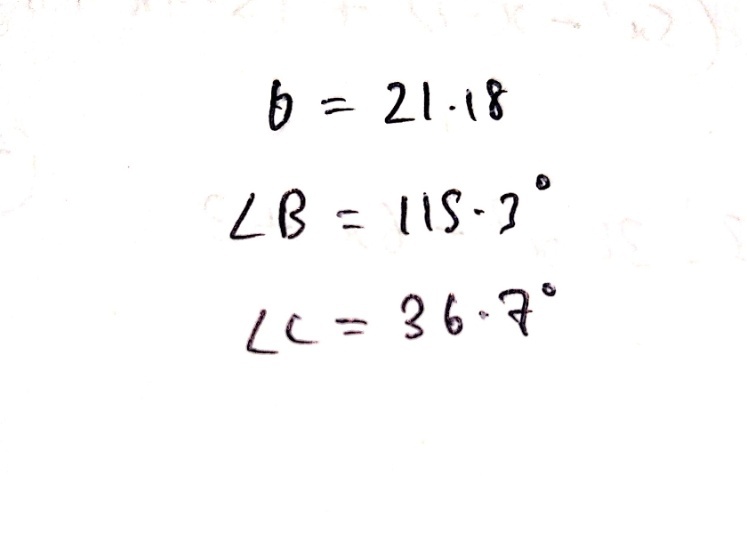 b = 21.18
∠B = 115.3°
∠C = 36.7°